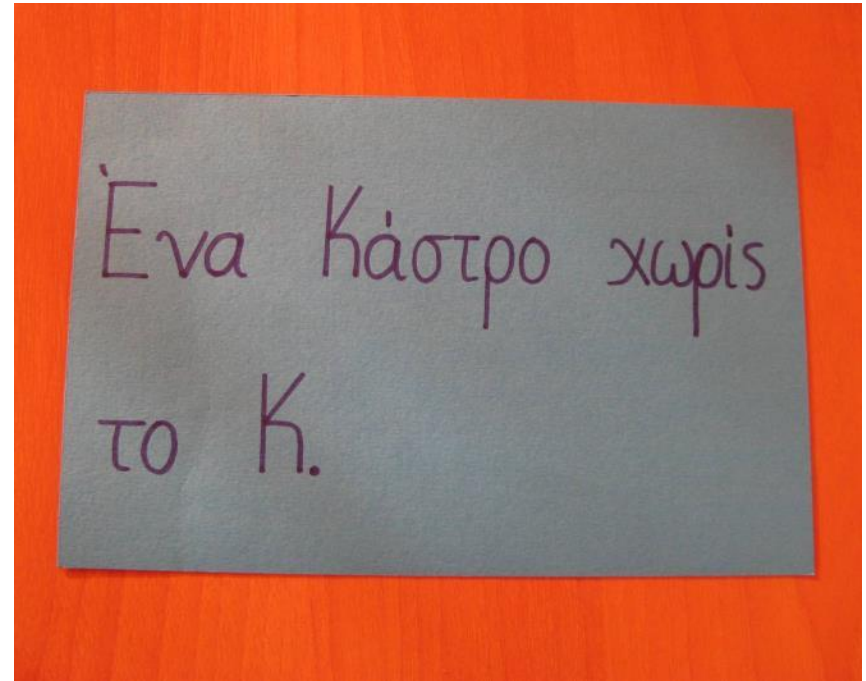 Ένα Κάστρο χωρίς
το Κ.